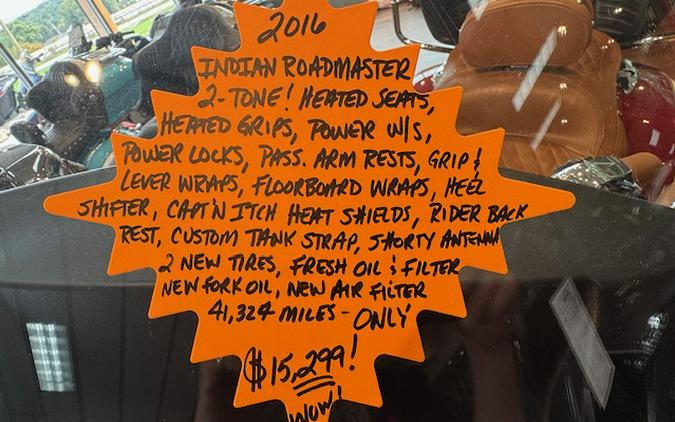 2016
INDIAN ROADMASTER
2-TONE! HEATED SEATS,
HEATED GRIPS, POWER W/S,
POWER LOCKS, PASS. ARM RESTS, GRIP &
LEVER WRAPS, FLOORBOARD WRAPS, HEEL
SHIFTER, CAPT'N ITCH HEAT SHIELDS, RIDER BACK
REST, CUSTOM TANK STRAP, SHORTY ANTENNA
2 NEW TIRES, FRESH OIL & FILTER
NEW FORK OIL, NEW AIR FILTER
41,324 MILES - ONLY
$15,299!
WOW!